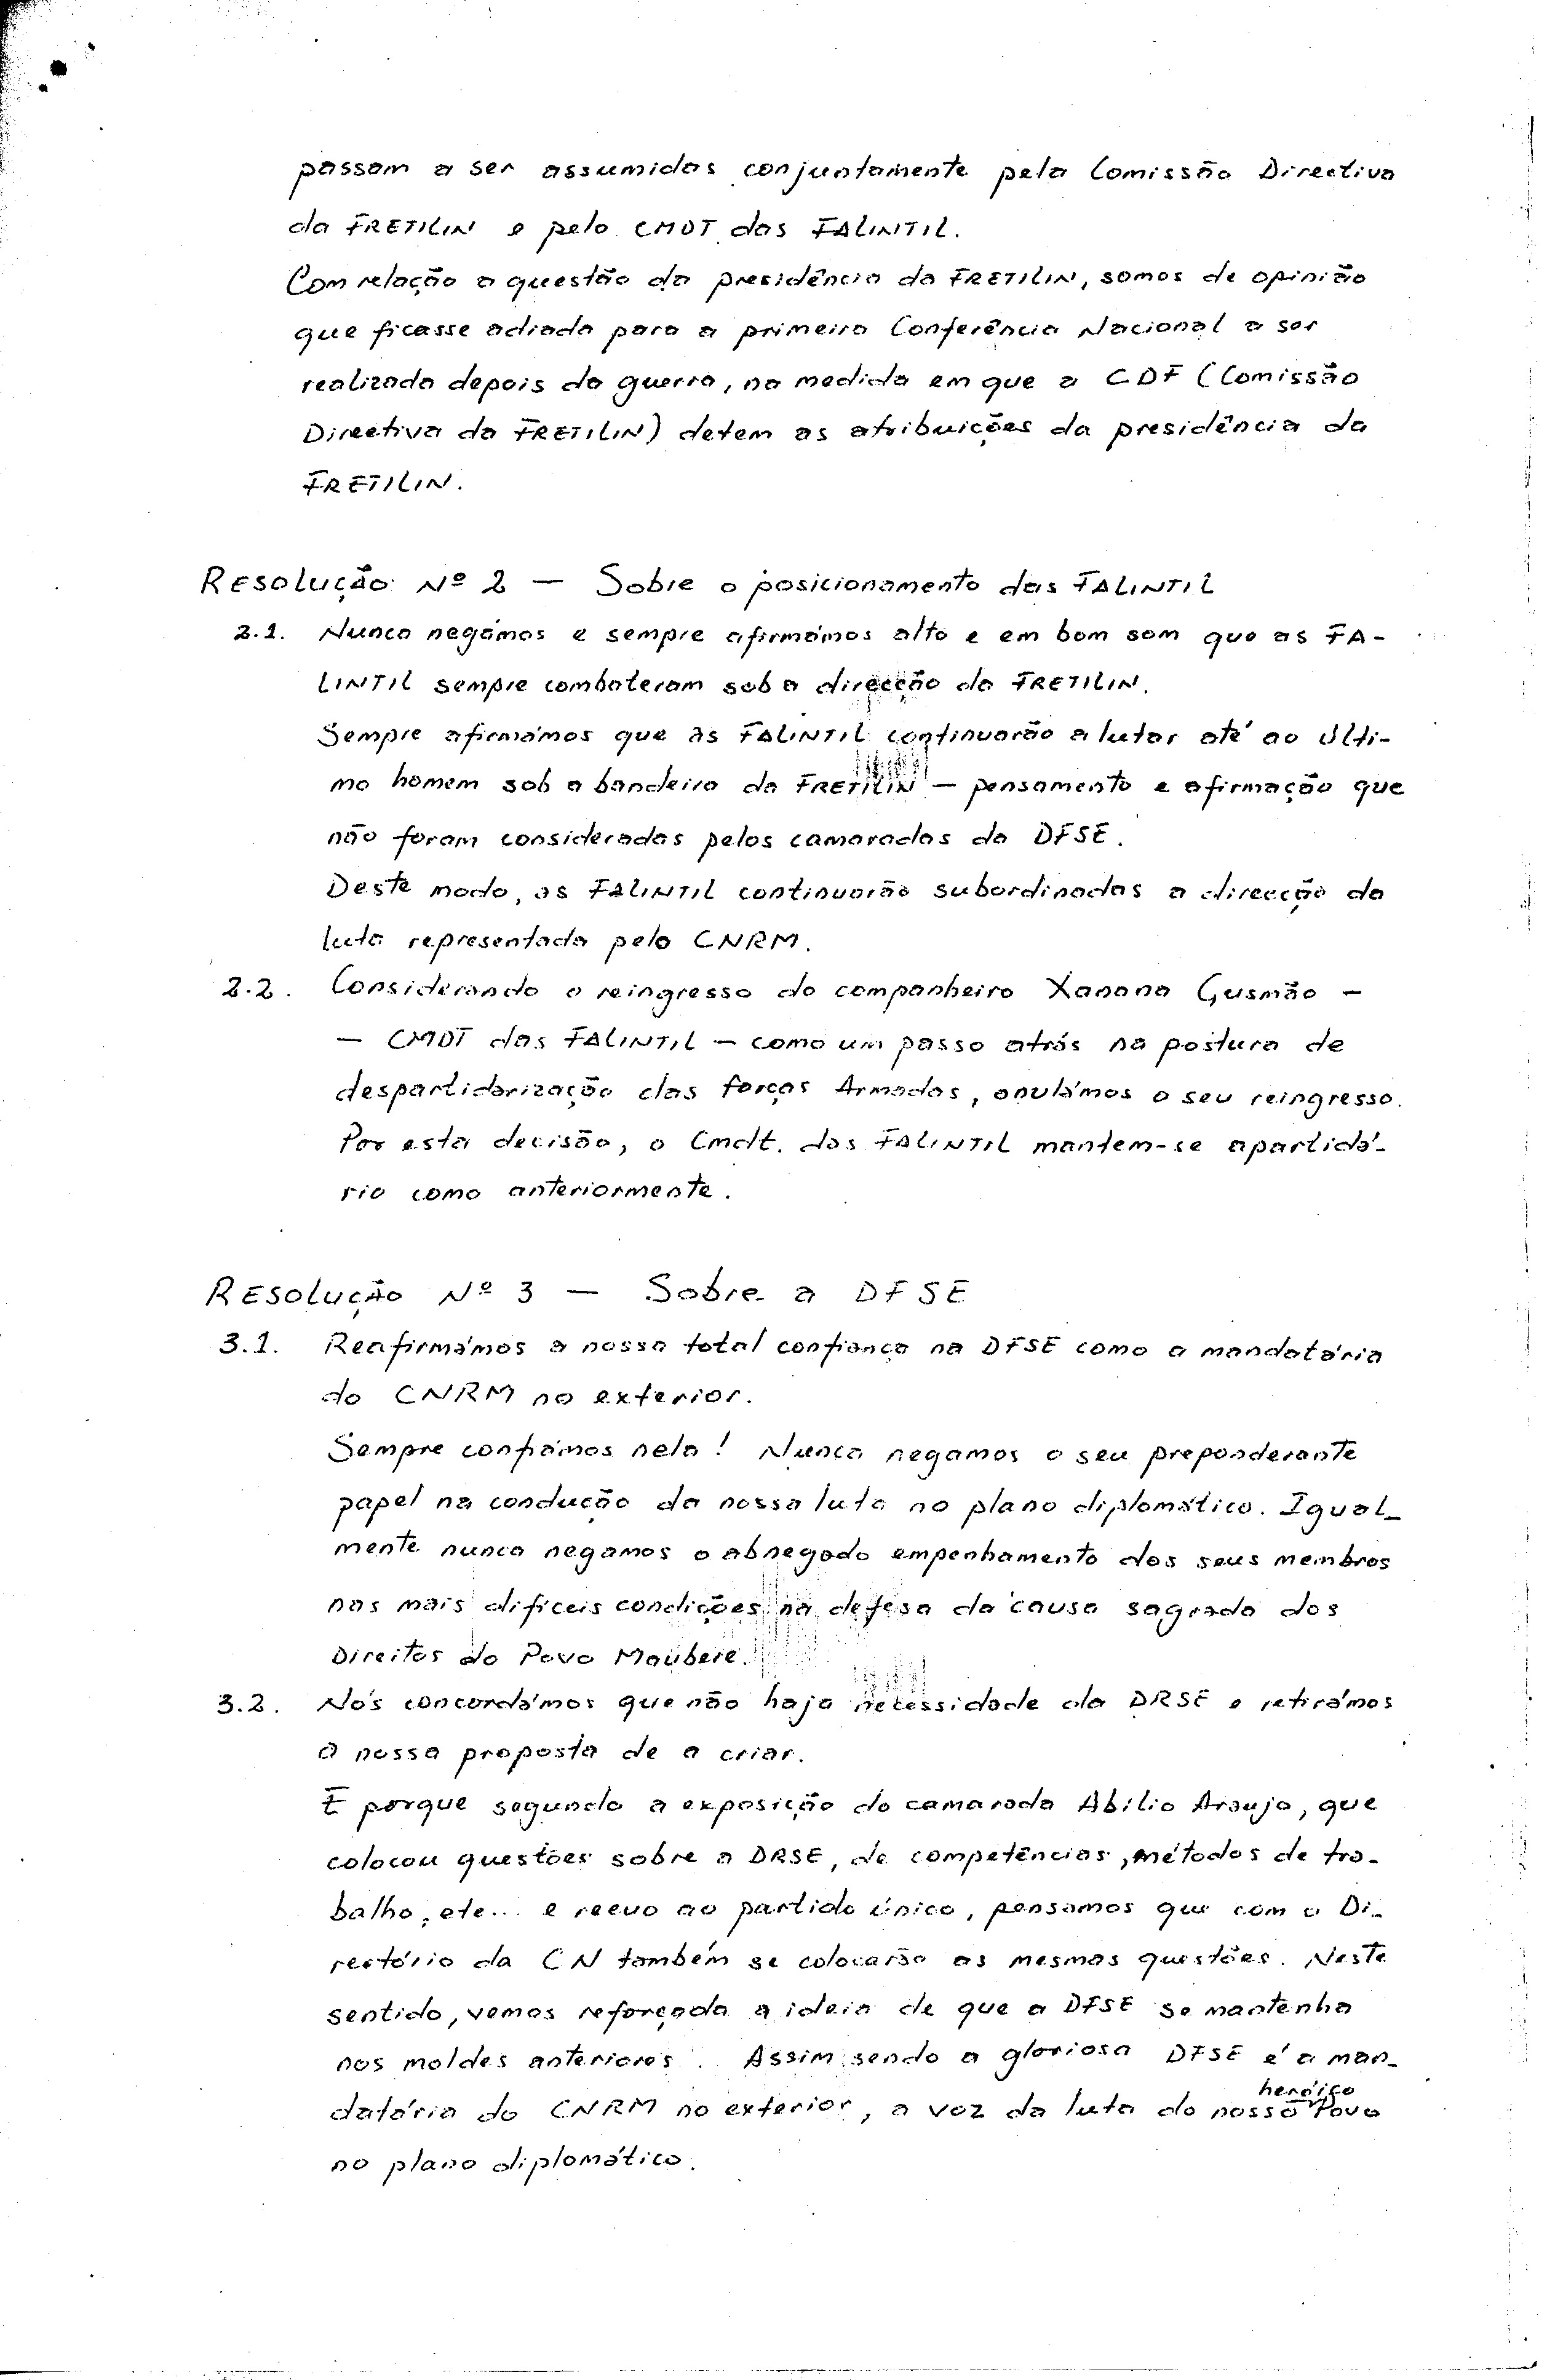 passam a ser assumidas conjuntamente pela Comissão Directiva
da FRETILIN e pelo CMDT das FALINTIL.
Com relação a questão da presidência da FRETILIN, somos de opinião
que ficasse adiada para a primeira Conferência Nacional a ser
realizada depois da guerra, na medida em que a CDF (Comissão
Directiva da FRETILIN) detem as atribuições da presidência da
FRETILIN.
RESOLUÇÃO Nº 2 — Sobre o posicionamento das FALINTIL
2.1. Nunca negámos e sempre afirmámos alto e em bom som que as FA-
LINTIL sempre combateram sob a direcção da FRETILIN.
Sempre afirmámos que as FALINTIL continuarão a lutar até ao últi-
mo homem sob a bandeira da FRETILIN — pensamento e afirmação que
não foram consideradas pelos camaradas da DFSE.
Deste modo, as FALINTIL continuarão subordinadas a direcção da
luta representada pelo CNRM.
2.2. Considerando o reingresso do companheiro Xanana Gusmão —
— CMDT das FALINTIL — como um passo atrás na postura de
despartidarização das forças Armadas, anulámos o seu reingresso.
Por esta decisão, o Cmdt. das FALINTIL mantem-se apartidá-
rio como anteriormente.
RESOLUÇÃO Nº 3 — Sobre a DFSE
3.1. Reafirmámos a nossa total confiança na DFSE como a mandatária
do CNRM no exterior.
Sempre confiámos nela! Nunca negamos o seu preponderante
papel na condução da nossa luta no plano diplomático. Igual-
mente nunca negamos o abnegado empenhamento dos seus membros
nas mais difíceis condições na defesa da causa sagrada dos
Direitos do Povo Maubere.
3.2. Nós concordámos que não haja necessidade da DRSE e retirámos
a nossa proposta de a criar.
E porque segundo a exposição do camarada Abílio Araujo, que
colocou questões sobre a DRSE, de competências, métodos de tra-
balho, etc... e recuo ao partido único, pensamos que com o Di-
rectório da CN também se colocarão as mesmas questões. Neste
sentido, vemos reforçada a ideia de que a DFSE se mantenha
nos moldes anteriores. Assim sendo a gloriosa DFSE é a man-
datária do CNRM no exterior, a voz da luta do nosso heróico Povo
no plano diplomático.